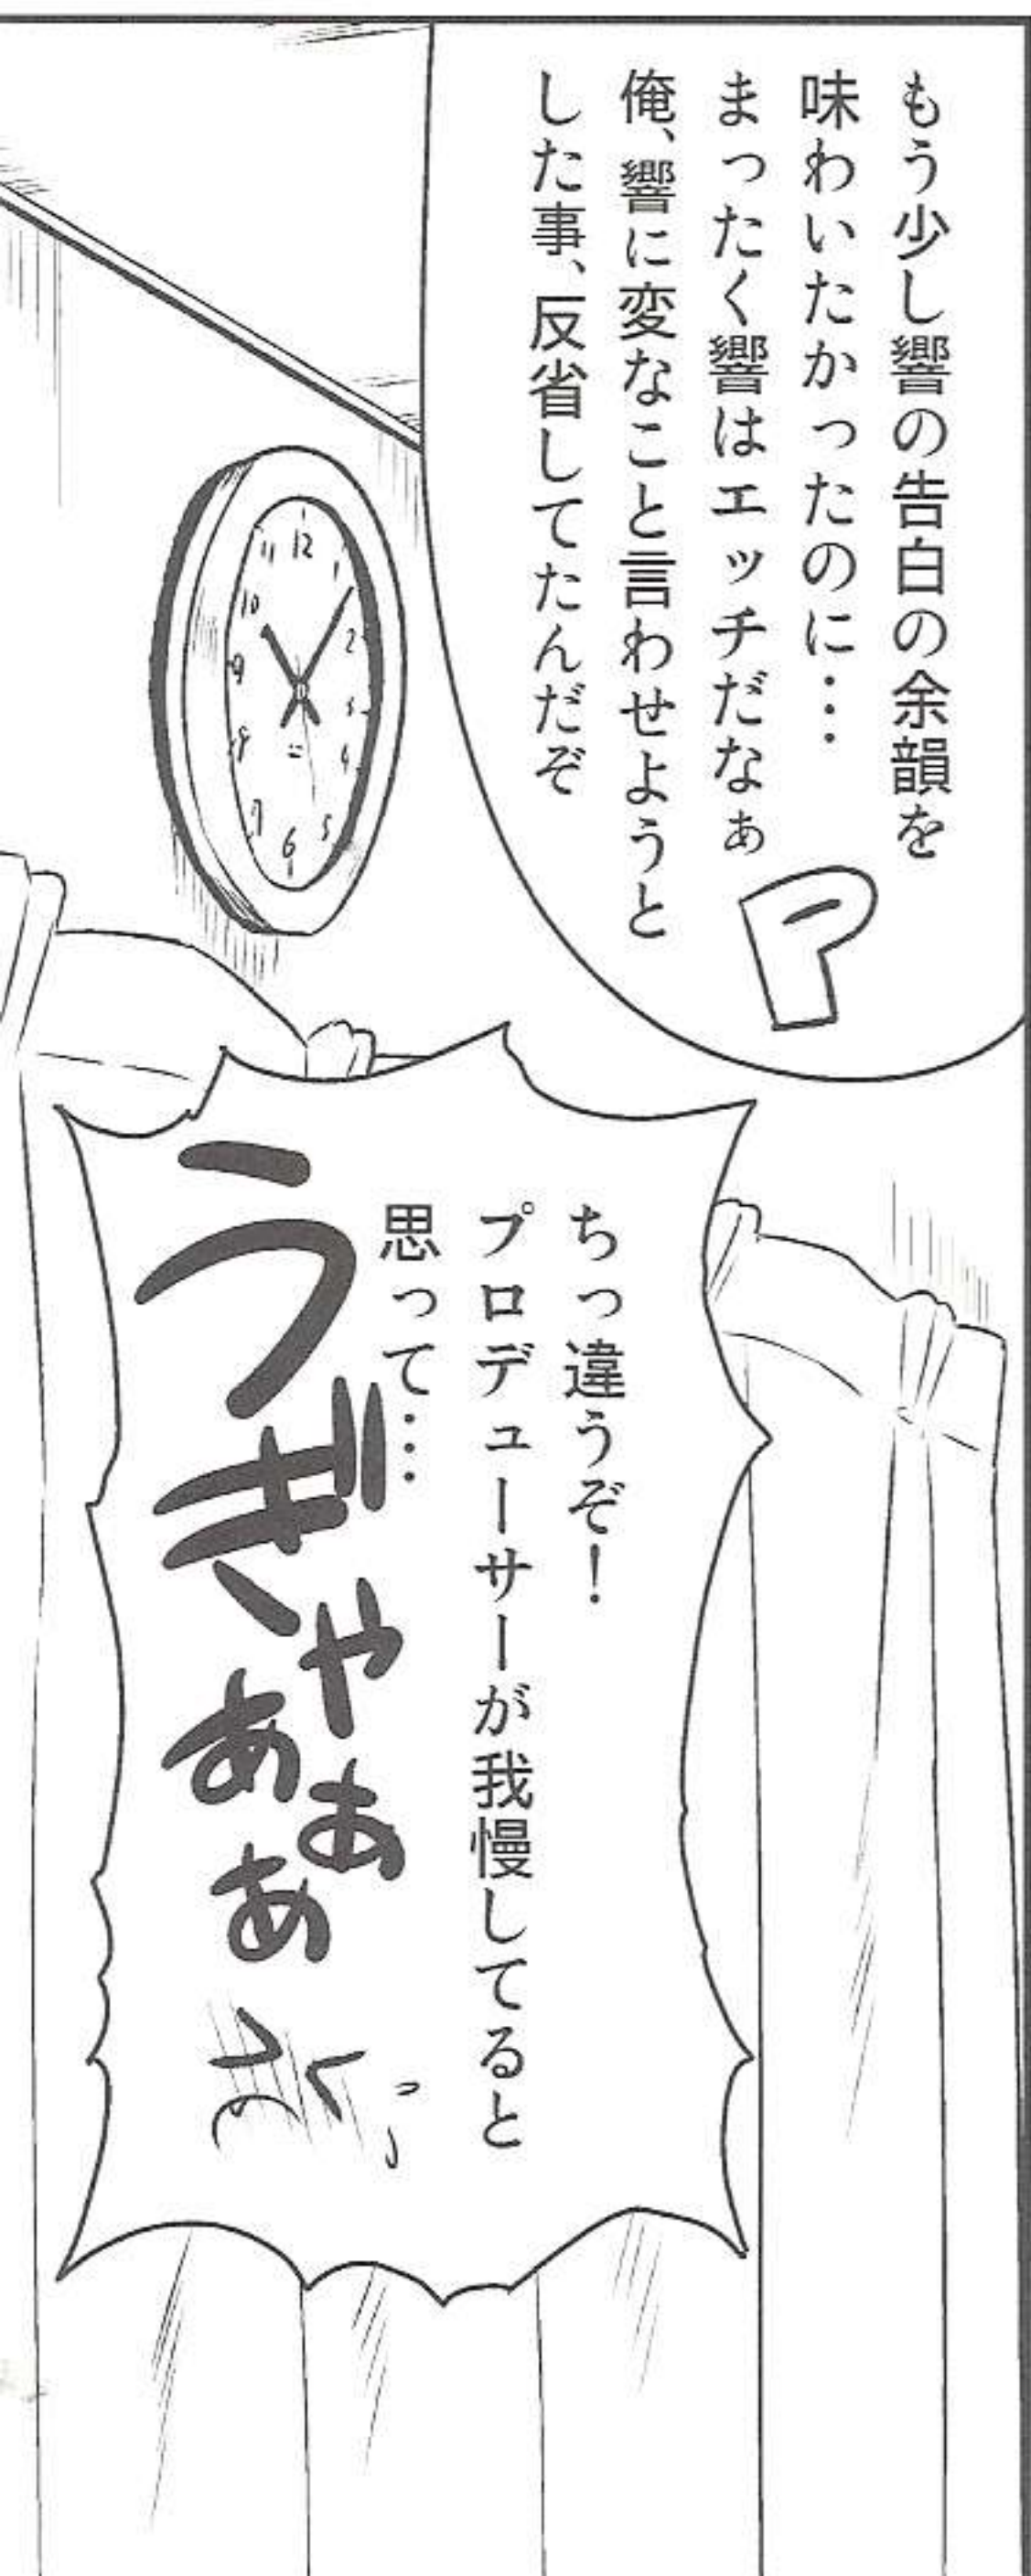 もう少し響の告白の余韻を
味わいたかったのに…
まったく響はエッチだなぁ
俺、響に変なこと言わせようと
した事、反省してたんだぞ
P
12
1
2
3
4
5
6
7
8
9
10
11
ちっ違うぞ！
プロデューサーが我慢してると
思って…
うぎゃあぁあ